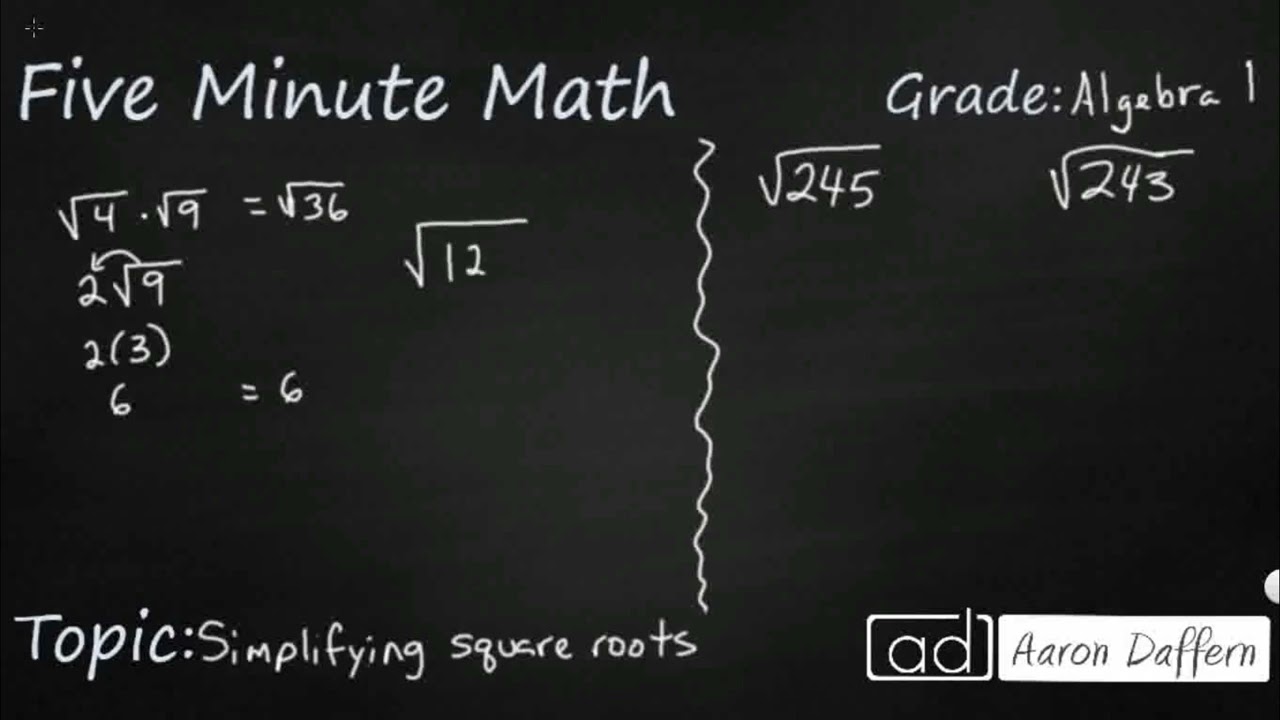 Five Minute Math
Grade: Algebra 1
√4 · √9 = √36
2√9
2(3)
6 = 6
√12
√245
√243
Topic: Simplifying square roots
ad Aaron Daffern